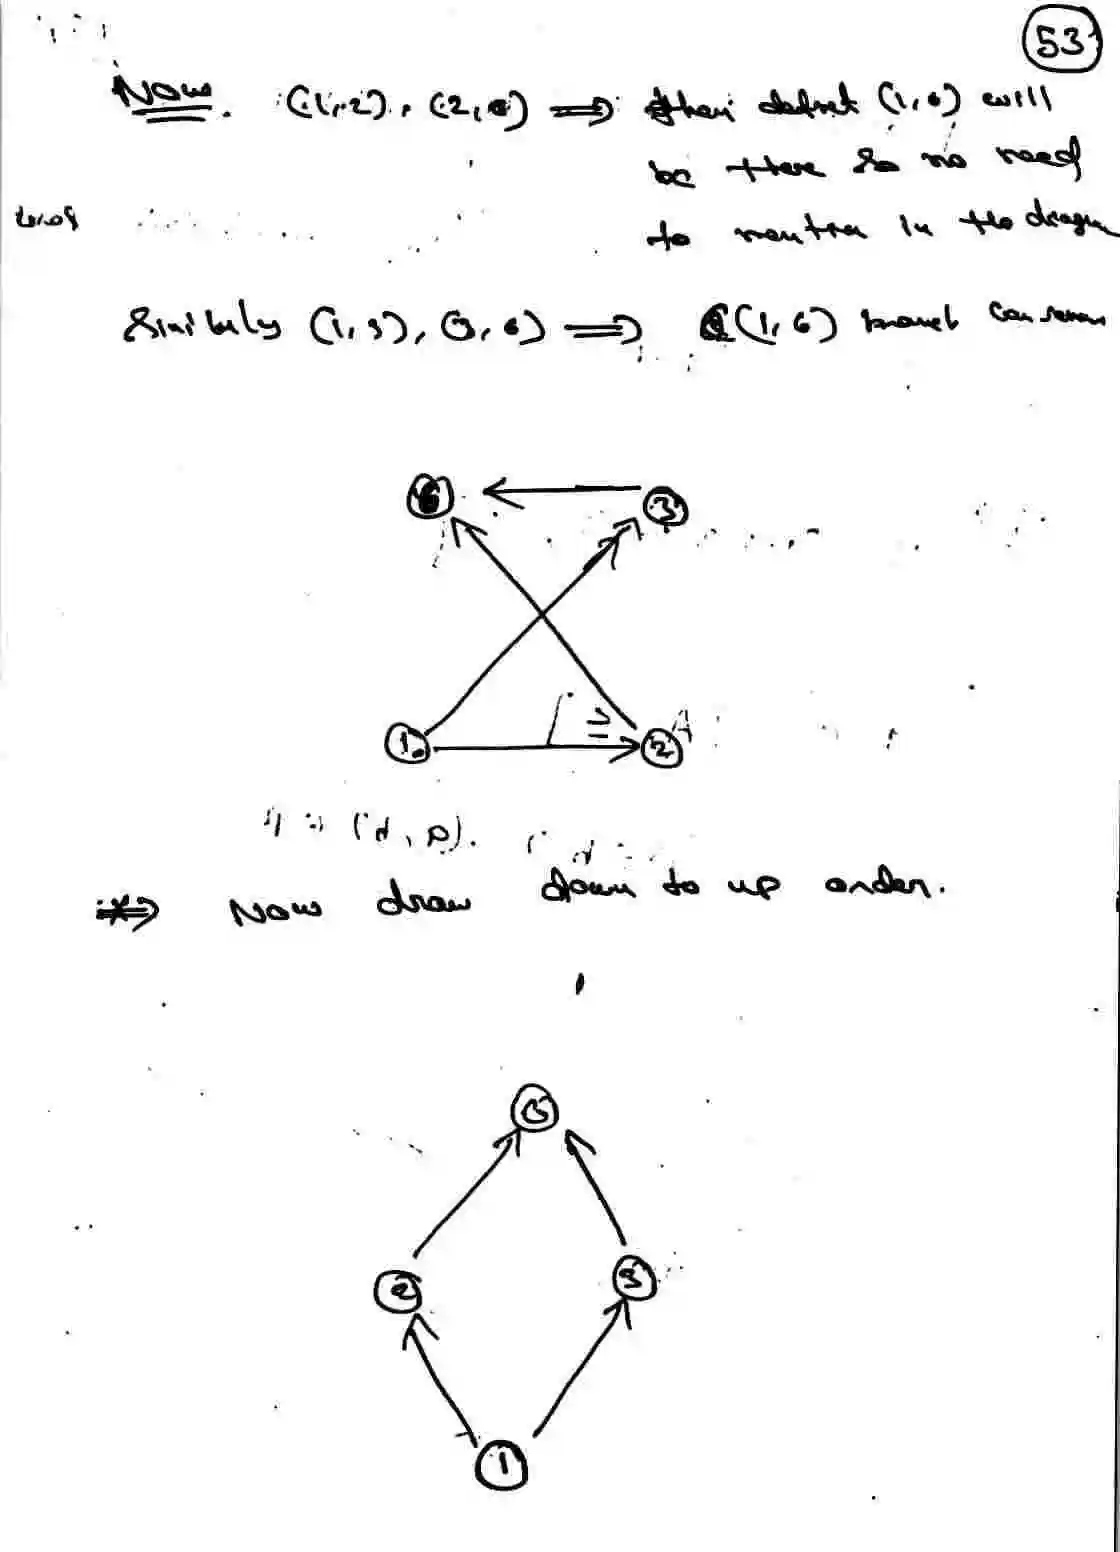 53
Now. (1,2), (2,6) ⟹ then (1,6) will
be there so no need
to in the
(1,3), (3,6) ⟹ (1,6)
6 3
1 2
⟹ Now draw down to up order.
6
2 3
1